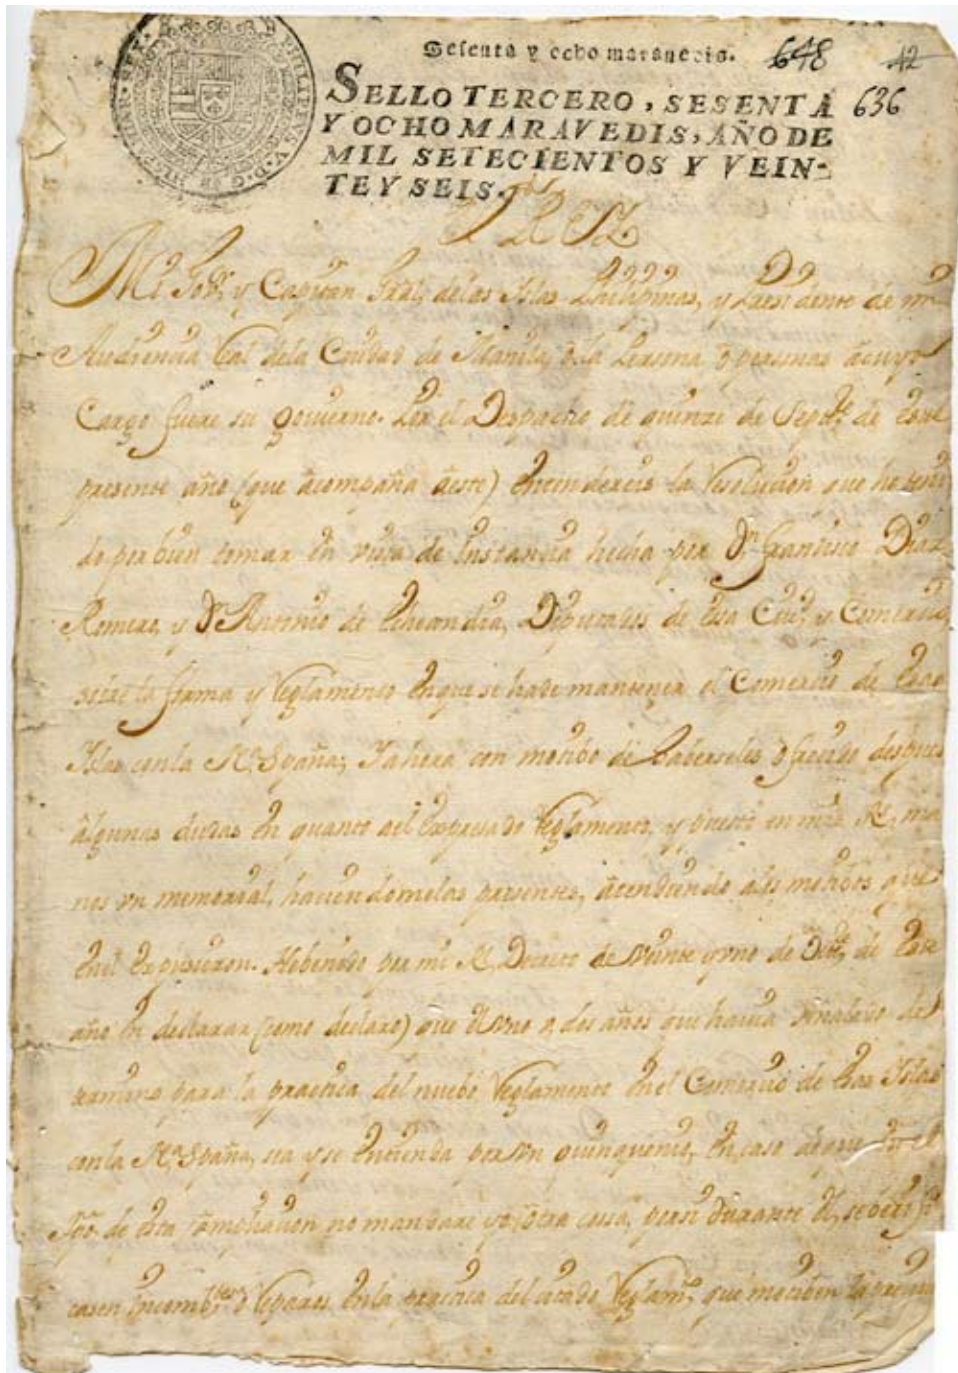 Sesenta y ocho maravedis. 648 12
SELLO TERCERO, SESENTA 636
Y OCHO MARAVEDIS, AÑO DE
MIL SETECIENTOS Y VEIN-
TE Y SEIS.
EL REY
Mi Govr. y Capitan Gral. de las Islas Philipinas, y Presidente de mi
Audiencia Rl. de la Ciudad de Manila, ò la Persona, ò personas à cuyo
Cargo fuere su Govierno. Por el Despacho de quinze de Sepre. de este
presente año (que acompaña à este) entendereis la resolucion que he teni
do por bien tomar en vista de instancia hecha por Dn. Francisco Diaz
Romero, y Dn. Antonio de Echeandia, Diputados de esa Ciud. y Comercio,
sobre la forma y reglamento en que se ha de mantener el Comercio de esas
Islas con la Na. España; Y ahora con motibo de haberseles ofrecido despues
algunas dudas en quanto al expresado reglamento, y puesto en mis Rs. ma
nos un memorial, haciendomelas presentes, atendiendo à los motibos que
en el expusieron. He benido por mi Rl. Decreto de veinte y uno de de este
año en declarar (como declaro) que el uno ò dos años que havia señalado de
termino para la practica del nuebo reglamento en el Comercio de esas Islas
con la Na. España, sea y se entienda por un quinquenio, en caso de que en el
tpo. de esta ampliacion no mandare yo otra cosa, pero si durante el, se
casen ò reparos en la practica del citado reglamto. que motiben